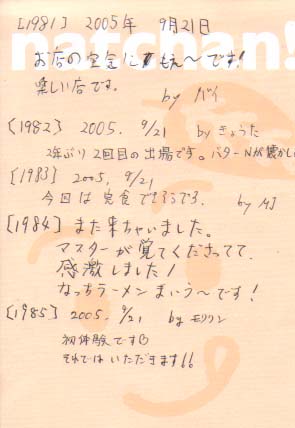 natchan!
[1981] 2005年 9月21日
お店の宝金にもえ〜です!
楽しい店です。
by バイ
[1982] 2005. 9/21 by きょうた
2年ぶり2回目の出場です。バターNが懐かし
[1983] 2005, 9/21
今回は完食できるぞる. by MJ
[1984] また来ちゃいました。
マスターが覚てくださってて、
感激しました!
なっちラーメンまいう〜です!
[1985] 2005. 9/21 by モリワン
初体験です
それでは いただきます!!